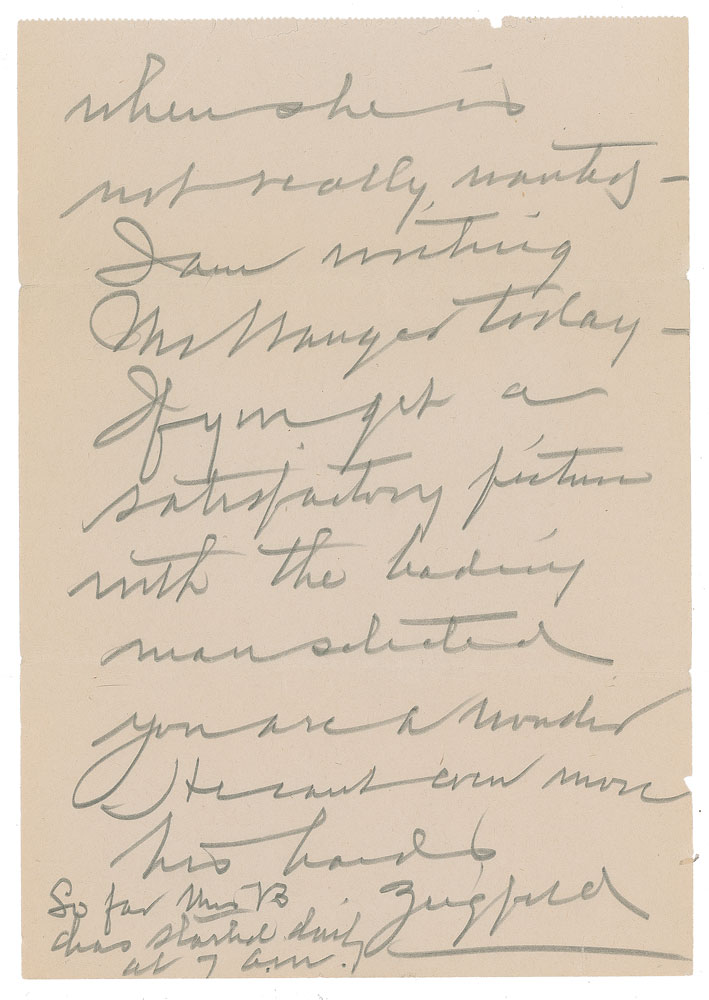 when she is
not really wanted —
I am writing
Mr Wanger today —
If you get a
satisfactory picture
with the leading
man selected
you are a wonder
He cant even move
his hands
Ziegfeld
So far Miss B
has started daily
at 7 a.m.